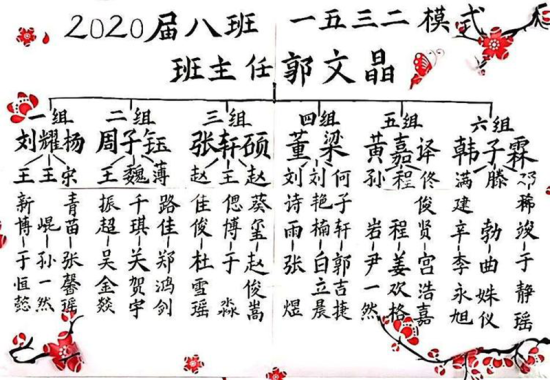 2020届八班 一五三二模式
班主任郭文晶
一组 二组 三组 四组 五组 六组
刘耀杨 周子钰 张轩硕 董梁 黄嘉译 韩子霖
王新博 王焜 宋青苗
于恒懿 孙一然 张馨瑶
王振超 魏千琪 薄路佳
吴金燚 关贺宇 郑鸿剑
赵佳俊 王偲博 赵葵玺
杜雪瑶 于淼 赵俊嵩
刘诗雨 刘艳楠 何子轩
张煜 白立晨 郭吉捷
孙岩 程程 佟俊贤
尹一然 姜欢格 宫浩嘉
满建辛 滕勃 邓稀竣
李永旭 曲姝仪 于静瑶